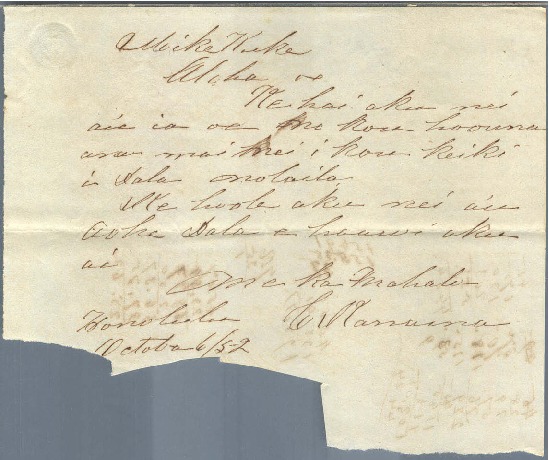 Mika Kuke
Aloha oe
Ke hai aku nei
au ia oe no kou hoouna
ana mai nei i kou keiki
i Dala nolaila
Ke hoole aku nei au
Aohe Dala e haawi aku
ai
Me ka Mahalo
Honolulu C Kanaina
Octoba 6/52